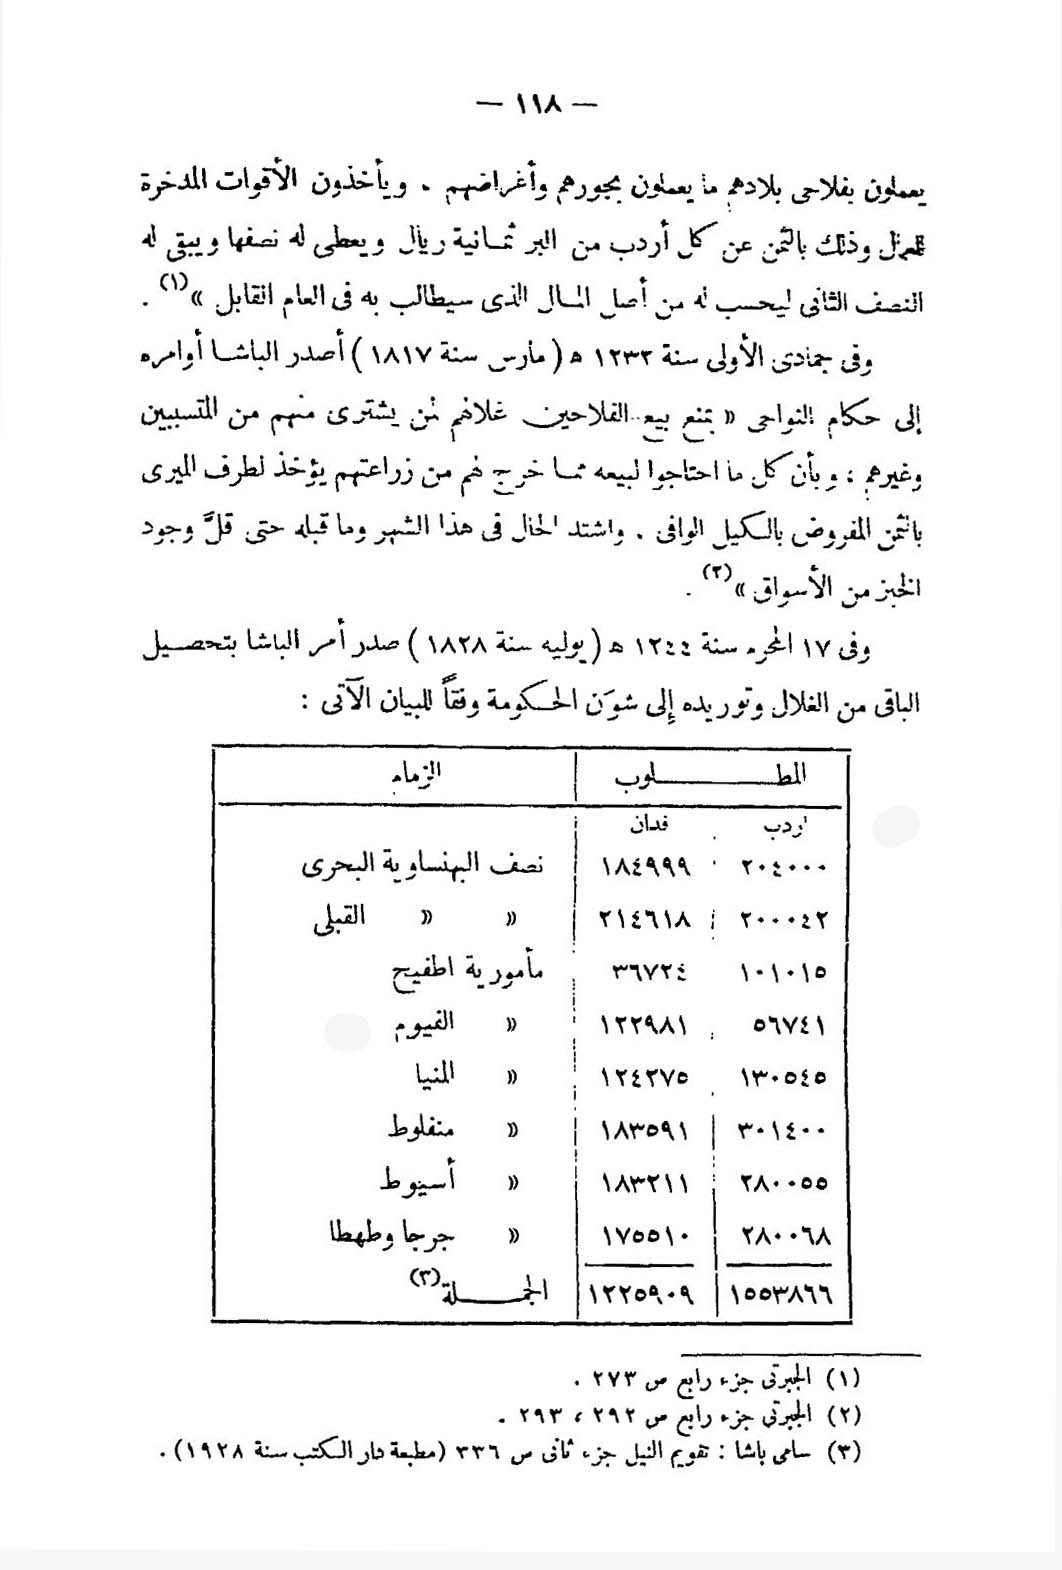 — ١١٨ —
يعملون بفلاحى بلادهم ما يعملون بجورهم وأغراضهم . ويأخذون الأقوات المدخرة
وذلك بالثمن عن كل أردب من البر ثمانية ريال ويعطى له نصفها ويبقى له
النصف الثانى ليحسب له من أصل المال الذى سيطالب به فى العام القابل » (١) .
وفى جمادى الأولى سنة ١٢٣٢ ه ( مارس سنة ١٨١٧ ) أصدر الباشا أوامره
إلى حكام النواحى « بمنع بيع الفلاحين غلالهم لمن يشترى منهم من المتسببين
وغيرهم ، وبأن كل ما احتاجوا لبيعه مما خرج لهم من زراعتهم يؤخذ لطرف الميرى
بالثمن المفروض بالكيل الوافى . واشتد الحال فى هذا الشهر وما قبله حتى قلَّ وجود
الخبز من الأسواق » (٢) .
وفى ١٧ المحرم سنة ١٢٤٤ ه ( يوليه سنة ١٨٢٨ ) صدر أمر الباشا بتحصيل
الباقى من الغلال وتوريده إلى شوَن الحكومة وفقاً للبيان الآتى :
المطلوب الزمام
اردب فدان
٢٠٤٠٠٠ ١٨٤٩٩٩ نصف البهنساوية البحرى
٢٠٠٠٤٢ ٢١٤٦١٨ « « القبلى
١٠١٠١٥ ٣٦٧٢٤ مأمورية اطفيح
٥٦٧٤١ ١٢٢٩٨١ « الفيوم
١٣٠٥٤٥ ١٢٤٢٧٥ « المنيا
٣٠١٤٠٠ ١٨٣٥٩١ « منفلوط
٢٨٠٠٥٥ ١٨٣٢١١ « أسيوط
٢٨٠٠٦٨ ١٧٥٥١٠ « جرجا وطهطا
١٥٥٣٨٦٦ ١٢٢٥٩٠٩ الجملة (٣)
(١) الجبرتى جزء رابع ص ٢٧٣ .
(٢) الجبرتى جزء رابع ص ٢٩٢ ، ٢٩٣ .
(٣) سامى باشا : تقويم النيل جزء ثانى ص ٣٣٦ (مطبعة دار الكتب سنة ١٩٢٨) .